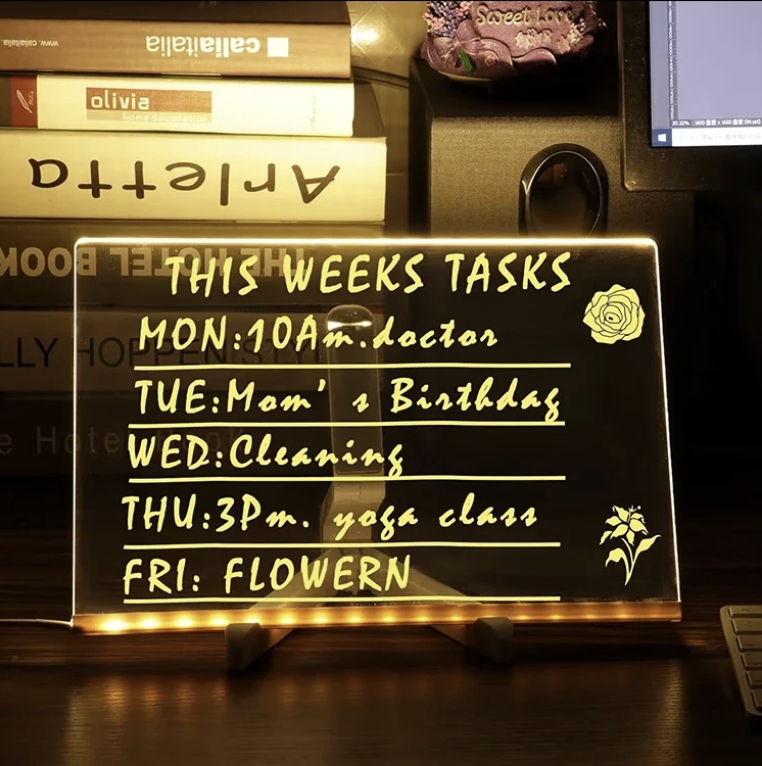 Sweet Love
www.caliaitalia
caliaitalia
olivia
home decoration
Arletta
THE HOTEL BOOK
LLY HOPPEN STY
e Hote
THIS WEEKS TASKS
MON:10Am.doctor
TUE:Mom's Birthday
WED:Cleaning
THU:3Pm. yoga class
FRI: FLOWERN